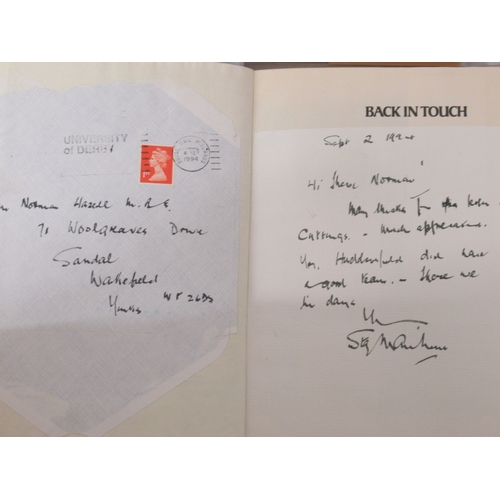 UNIVERSITY
of DERBY
1994
Norman Hazell M.B.E.
71 Woolgreaves Drive
Sandal
Wakefield
Yorks WF 2 6DS
BACK IN TOUCH
Sept 2 1994
Hi there Norman!
Many thanks for letter
Cuttings. - Much appreciated.
Yes, Huddersfield did have
a good team. - Those were
the days